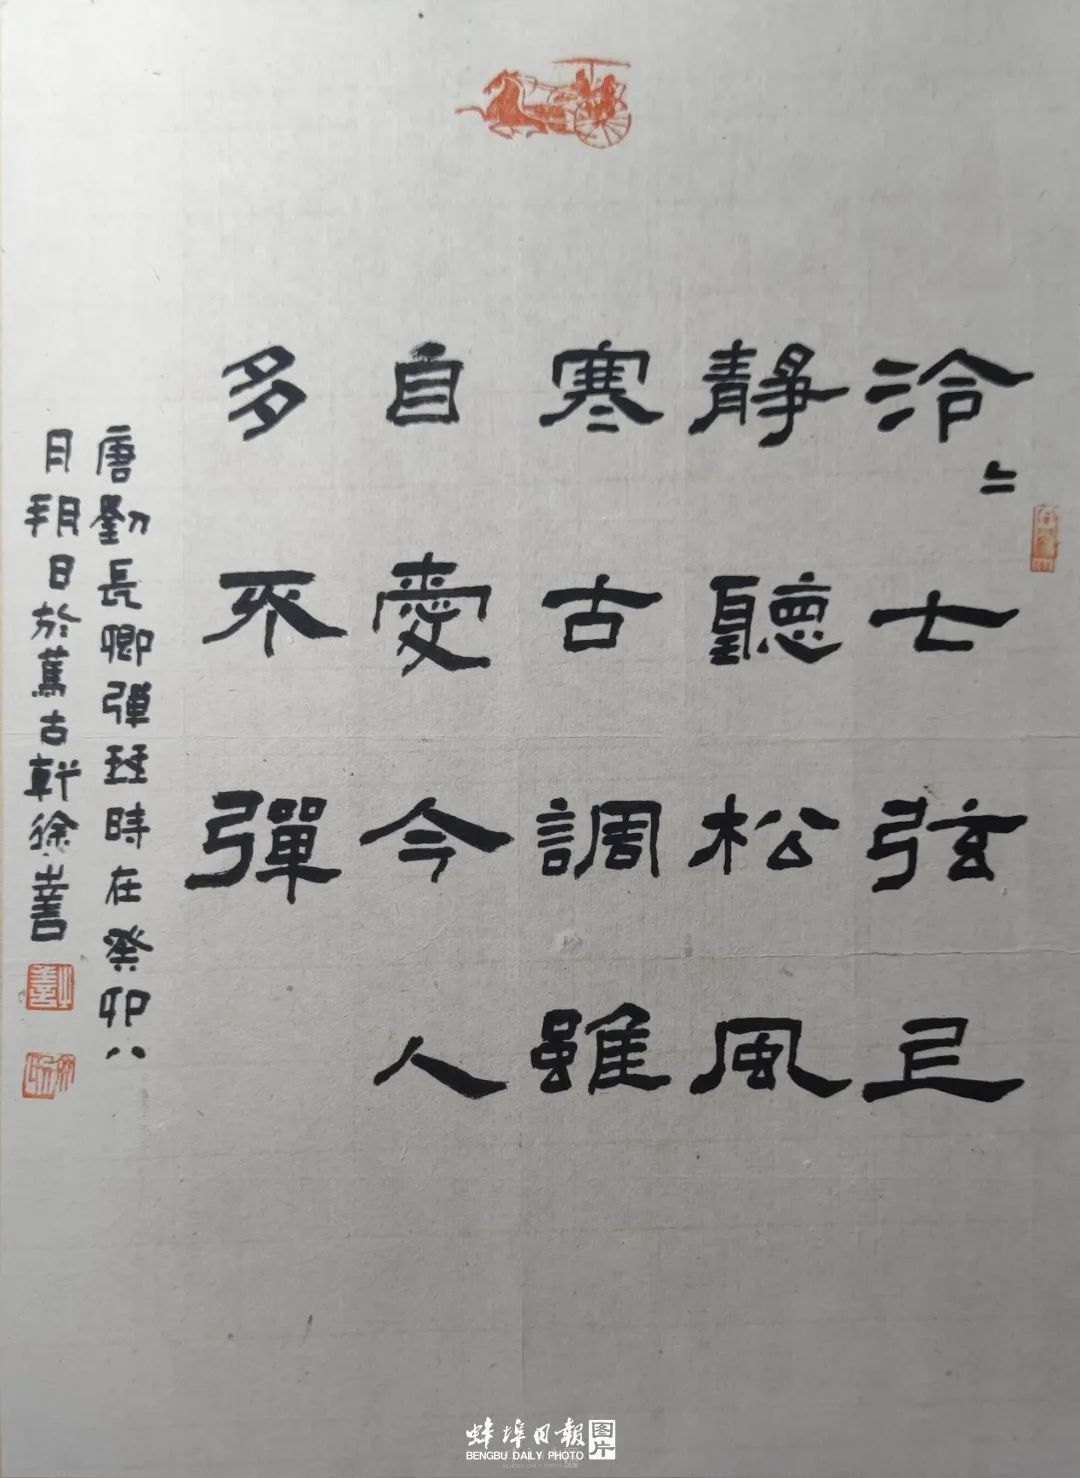 泠〻七弦上
靜聽松風
寒古調雖
自愛今人
多不彈
唐劉長卿彈琴時在癸卯八
月朔日於篤古軒徐山善
蚌埠日報图片
BENGBU DAILY PHOTO